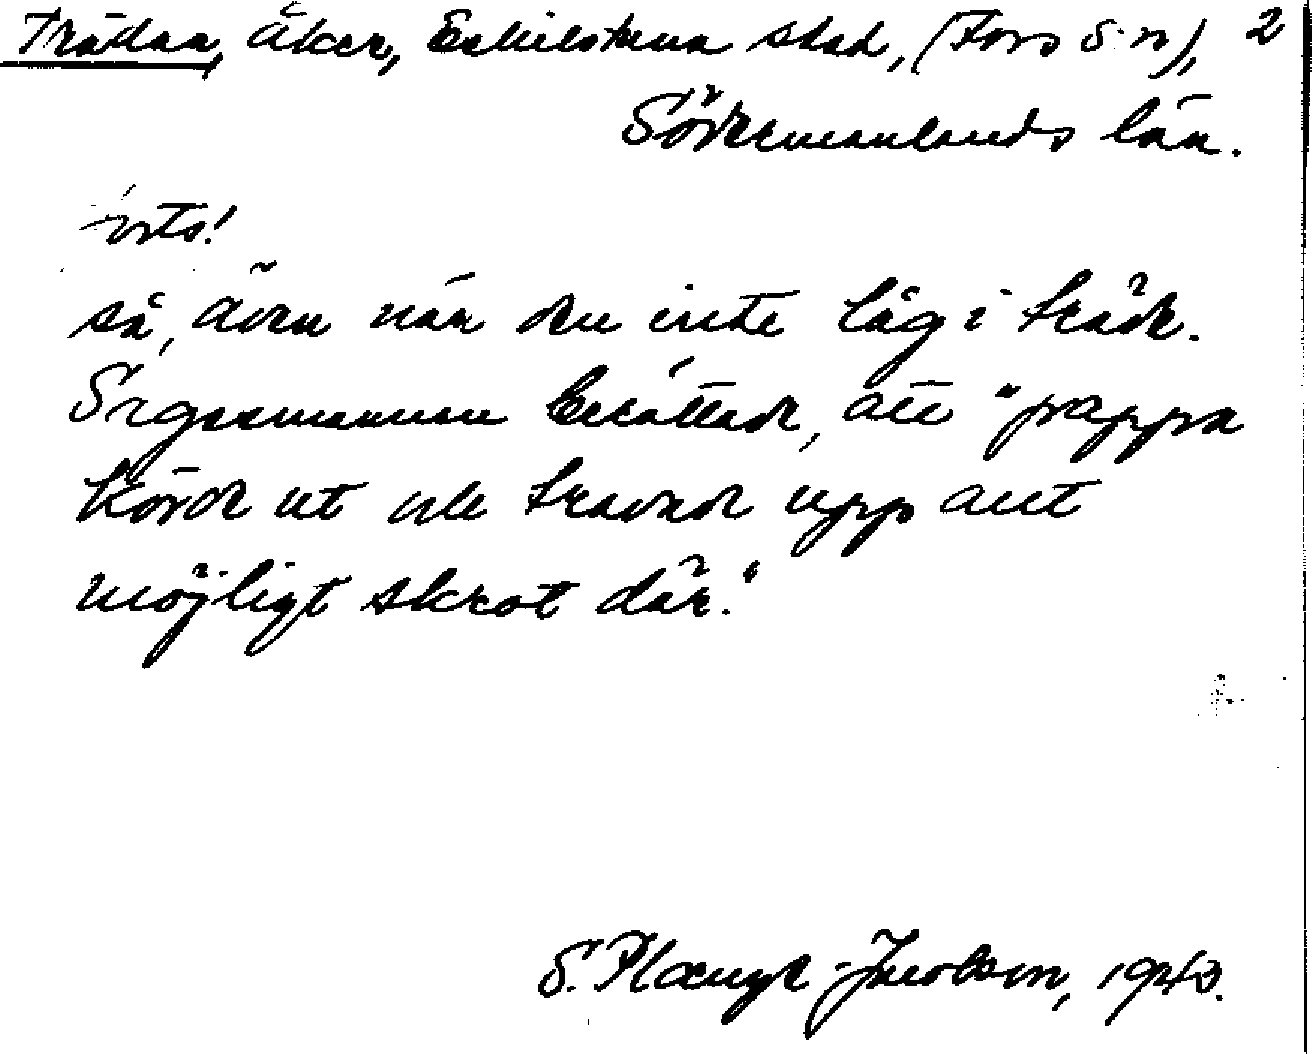 Trättan, åker, Eskilstuna stad, (Fors s:n), 2
Södermanlands län.
forts!
så, även när den inte låg i träde.
Sagesmannen berättade, att "pappa
körde ut och travade upp allt
möjligt skrot där."
S. Plænge-Jacobson, 1943.